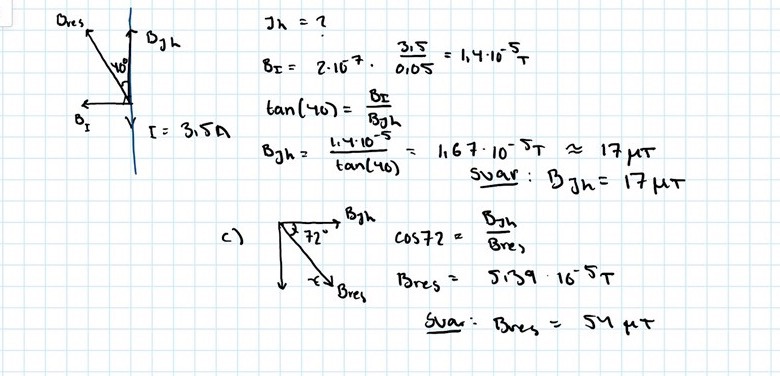 Bres
B_Jh
40°
B_I
I = 3,5A
Jh = ?
B_I = 2·10^-7 · 3,5/0,05 = 1,4·10^-5 T
tan(40) = B_I/B_Jh
B_Jh = 1,4·10^-5/tan(40) = 1,67·10^-5 T ≈ 17 μT
Svar: B_Jh = 17 μT
c)
B_Jh
72°
Bres
cos72 = B_Jh/Bres
Bres = 5,39 · 10^-5 T
Svar: Bres = 54 μT